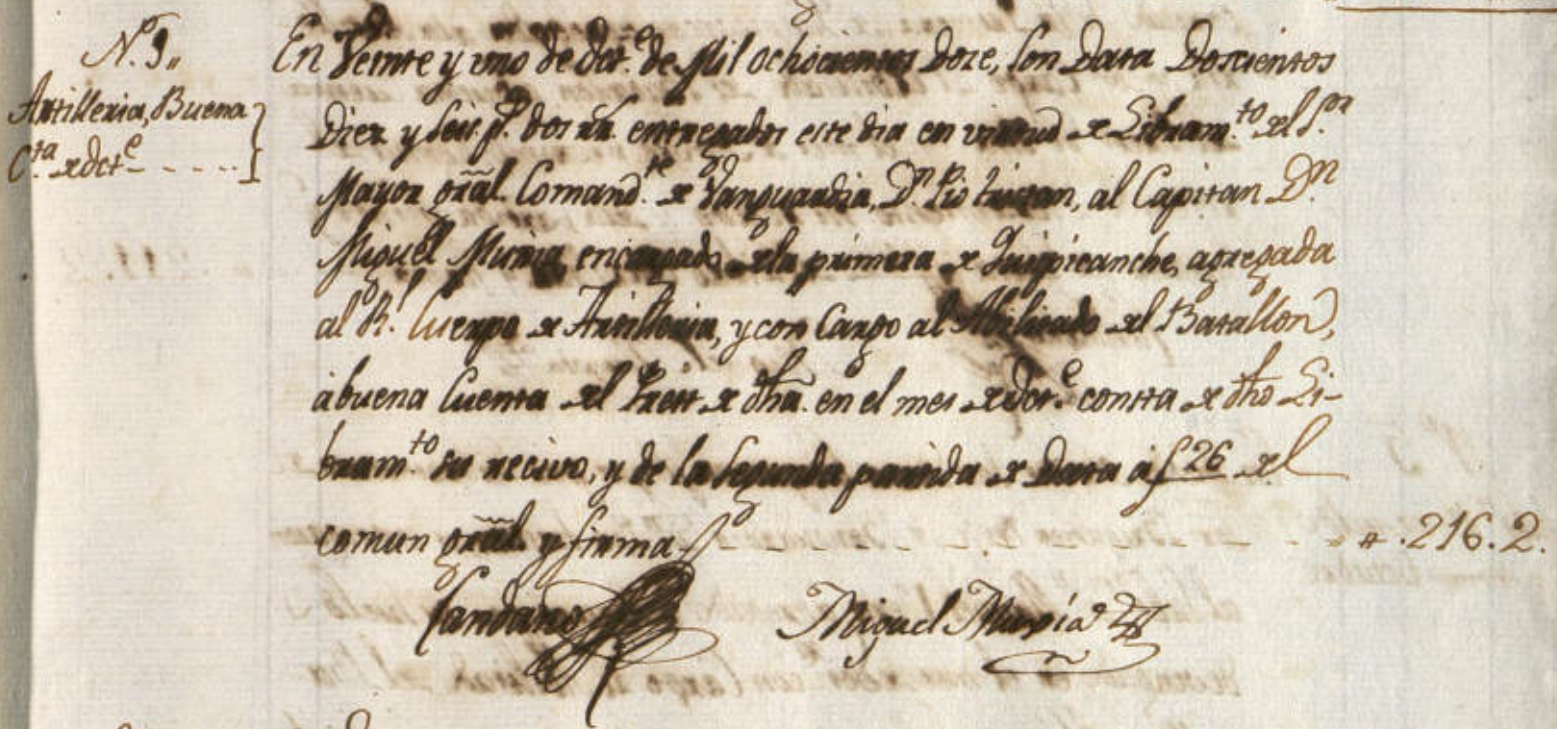 N.º 9,,
Artilleria, Buena
C.ta de oct.e
En Veinte y uno de oct.e de Mil ochocientos Doze, son Data Doscientos
Diez y seis p.s dos rr.s entregados este dia en virtud de Libram.to del S.or
Mayor gral. Comand.te de Vanguardia, D.n Pio tristan, al Capitan D.n
Miguel Muñia encargado dela primera de Quispicanche, agregada
al R.l Cuerpo de Artilleria, y con Cargo al Abilitado del Batallon,
abuena Cuenta del Prest de dha. en el mes de oct.e consta de dho Li-
bram.to su recivo, y de la segunda partida de Data á f 26 del
comun gral. y firma
" .216.2.
Candano Miguel Muñia